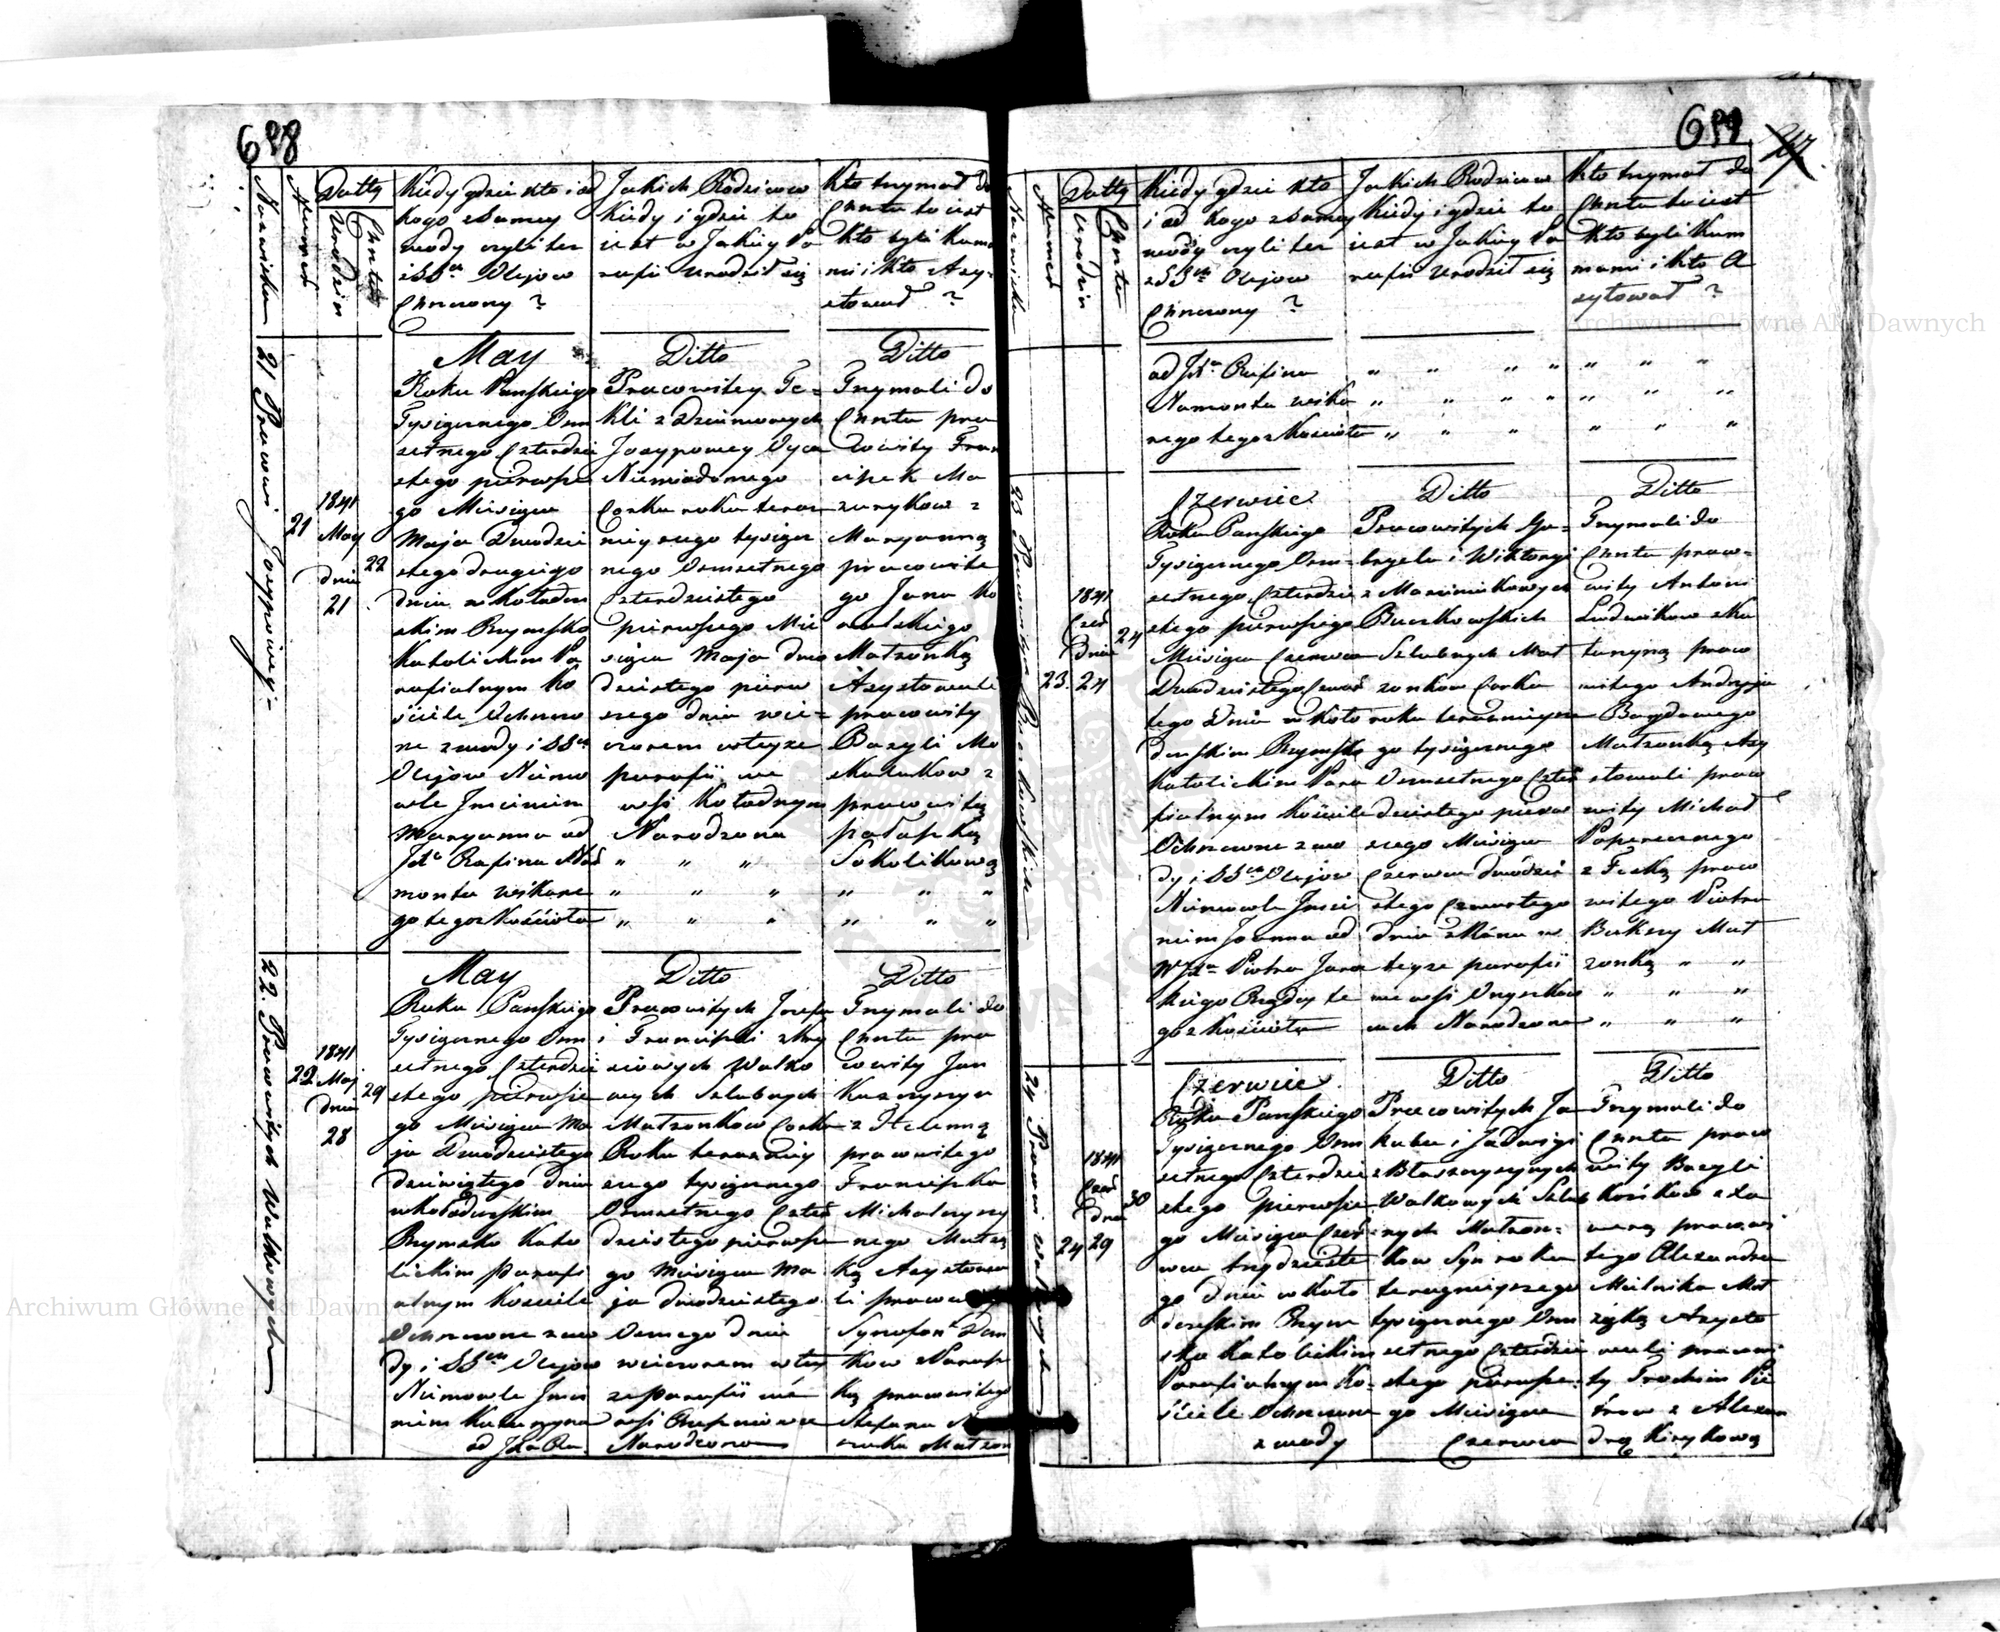 698
Nazwiska
Numer
Datty
Urodzin
Chrztu
Kiedy gdzie kto i od
kogo z samey
wody czyli też
i SSch Olejow
Chrzcony ?
Jakich Rodzicow
Kiedy i gdzie to
iest w Jakiey Pa
rafii Urodził się
Kto trzymał do
Chrztu to iest
kto byli Kumo
mi i kto Asy-
stował ?
21 Pracowi Jozypowey
21
1841
May
dnia
21
22
May
Roku Panskiego
Tysiącznego Osm
setnego Czterdzie
stego pierwsze
go Miesiąca
Maja Dwudzie
stego drugiego
dnia w Koladen
skim Rzymsko
Katolickim Pa
rafialnym Ko
ściele Ochrzczo
ne z wody i SSch
Olejow Niemo
wle Imieniem
Maryanna od
JXa Rafina Na
monta wikare
go tegoż Kościoła
Ditto
Pracowitey Te-
kli z Dziurowych
Jozypowey Oyca
Niewiadomego
Corka roku teraz
nieyszego tysiącz
nego Osmsetnego
Czterdziestego
pierwszego Mie
siąca Maja dwu
dziestego pierw
szego dnia wie-
czorem w teyże
parafii we
wsi Koladnym
Narodzona
" " "
" " "
" " "
Ditto
Trzymali do
Chrztu pra
cowity Fran
ciszek Ma
zurykow z
Maryanną
pracowite
go Jana Ko
walskiego
Małżonką
Asystowali
pracowity
Bazyli Mo
skalukow z
pracowitą
Pałaszką
Sokolikową
" " "
" " "
22. Pracowitych Walkowych
22
1841
Maj
dnia
28
29
May
Roku Panskiego
Tysiącznego Osm
setnego Czterdzie
stego pierwsze
go Miesiąca Ma
ja Dwudziestego
dziewiątego dnia
w Koladenskim
Rzymsko Kato
lickim Parafi
alnym Kościele
Ochrzczone z wo
dy i SSch Olejow
Niemowle Imie
niem Katarzyna
od JXa Ra
Ditto
Pracowitych Jozefa
i Franciszki z Kry
siowych Walko
wych Szlubnych
Małżonkow Corka
Roku teraźniey
szego tysiącznego
Osmsetnego Czter
dziestego pierwsze
go Miesiąca Ma
ja dwudziestego
Osmego dnia
wieczorem w tey
że Parafii we
wsi
Narodzona
Ditto
Trzymali do
Chrztu pra
cowity Jan
z Helenną
pracowitego
Franciszka
Michalczyny
nego Małżą
ką Asystowa
li pracowity
Dem
kow z Naraś
ką pracowitego
Stefana
Małżon
699
247
Nazwiska
Numer
Datty
Urodzin
Chrztu
Kiedy gdzie kto
i od kogo z samey
wody czyli też
z SSch Olejow
Chrzcony ?
Jakich Rodzicow
Kiedy i gdzie to
iest w Jakiey Pa
rafii Urodził się
Kto trzymał do
Chrztu to iest
kto byli Kum
mami i kto A
systował ?
od JXa Rafina
Namonta wika
rego tegoż Kościoła
" " " "
" " " "
" " "
" " "
" " "
" " "
23 Pracowitych Buczkowskich
23.
1841
Czer
dnia
24
24
Czerwiec
Roku Panskiego
Tysiącznego Osm-
setnego Czterdzie
stego pierwszego
Miesiąca Czerwca
Dwudziestego Czwar
tego Dnia w Koło
denskim Rzymsko
Katolickim Para
fialnym Kościele
Ochrzczone z wo
dy i SSch Olejow
Niemowle Imie
niem Joanna od
WJXa Piotra Jaro
kiego Rządcy te
goż Kościoła
Ditto
Pracowitych Ga-
bryela i Wiktoryi
z Marciniukowych
Buczkowskich
Szlubnych Mał
żonkow Corka
roku teraźnieysze
go tysiącznego
Osmsetnego Czter
dziestego pierw
szego Miesiąca
Czerwca dwudzie
stego Czwartego
dnia z Rana w
teyże parafii
we wsi Onyszkow
cach Narodzona
Ditto
Trzymali do
Chrztu praco-
wity Antoni
Ludwikow z Ka
tarzyną praco
witego Andrzeja
Bogdanego
Małżonką Asy
stowali praco
wity Michał
z Teklą praco
witego Piotra
Bakery Mał
żonką " "
" " "
" " "
24 Pracowi Walkowych
24
1841
Czer
dnia
29
30
Czerwiec
Roku Panskiego
Tysiącznego Osm
setnego Czterdzie
stego pierwsze
go Miesiąca Czer
wca trzydzieste
go dnia w Koło
denskim Rzym
sko Katolickim
Parafialnym Ko-
ściele Ochrzczone
z wody
Ditto
Pracowitych Ja
kuba i Jadwigi
z Błaszczyszynych
Walkowych Szlub
nych Małżon-
kow Syn roku
teraźnieyszego
tysiącznego Osm
setnego Czterdzie
stego pierwsze-
go Miesiąca
Czerwca
Ditto
Trzymali do
Chrztu praco
wity Bazyli
Koźikow z Xa
werą pracowi
tego Alexandra
Mielnika Mał
żąką Asysto
wali pracowi
ty Trochim Pie
trow z Alexan
drą Kirykową
Archiwum Główne Akt Dawnych
Archiwum Główne Akt Dawnych